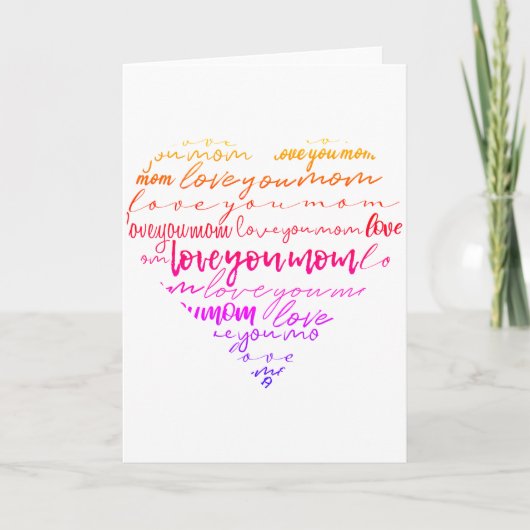 ove
you mom ove you mom
mom love you mom
love you mom
love you mom love you mom love
om love you mom lo
m love you m
u mom love
e you mo
ove